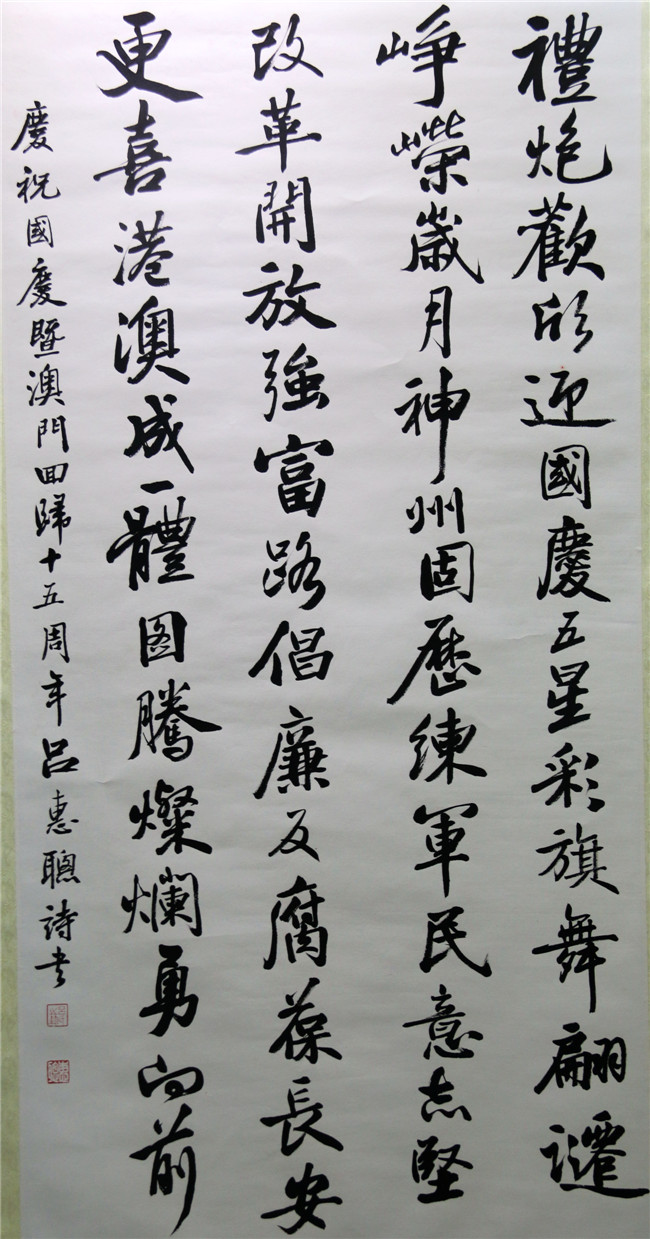 禮炮歡欣迎國慶五星彩旗舞翩躚
崢嶸歲月神州固歷練軍民意志堅
改革開放強富路倡廉反腐葆長安
更喜港澳成一體圖騰燦爛勇向前
慶祝國慶暨澳門回歸十五周年呂惠聰詩書